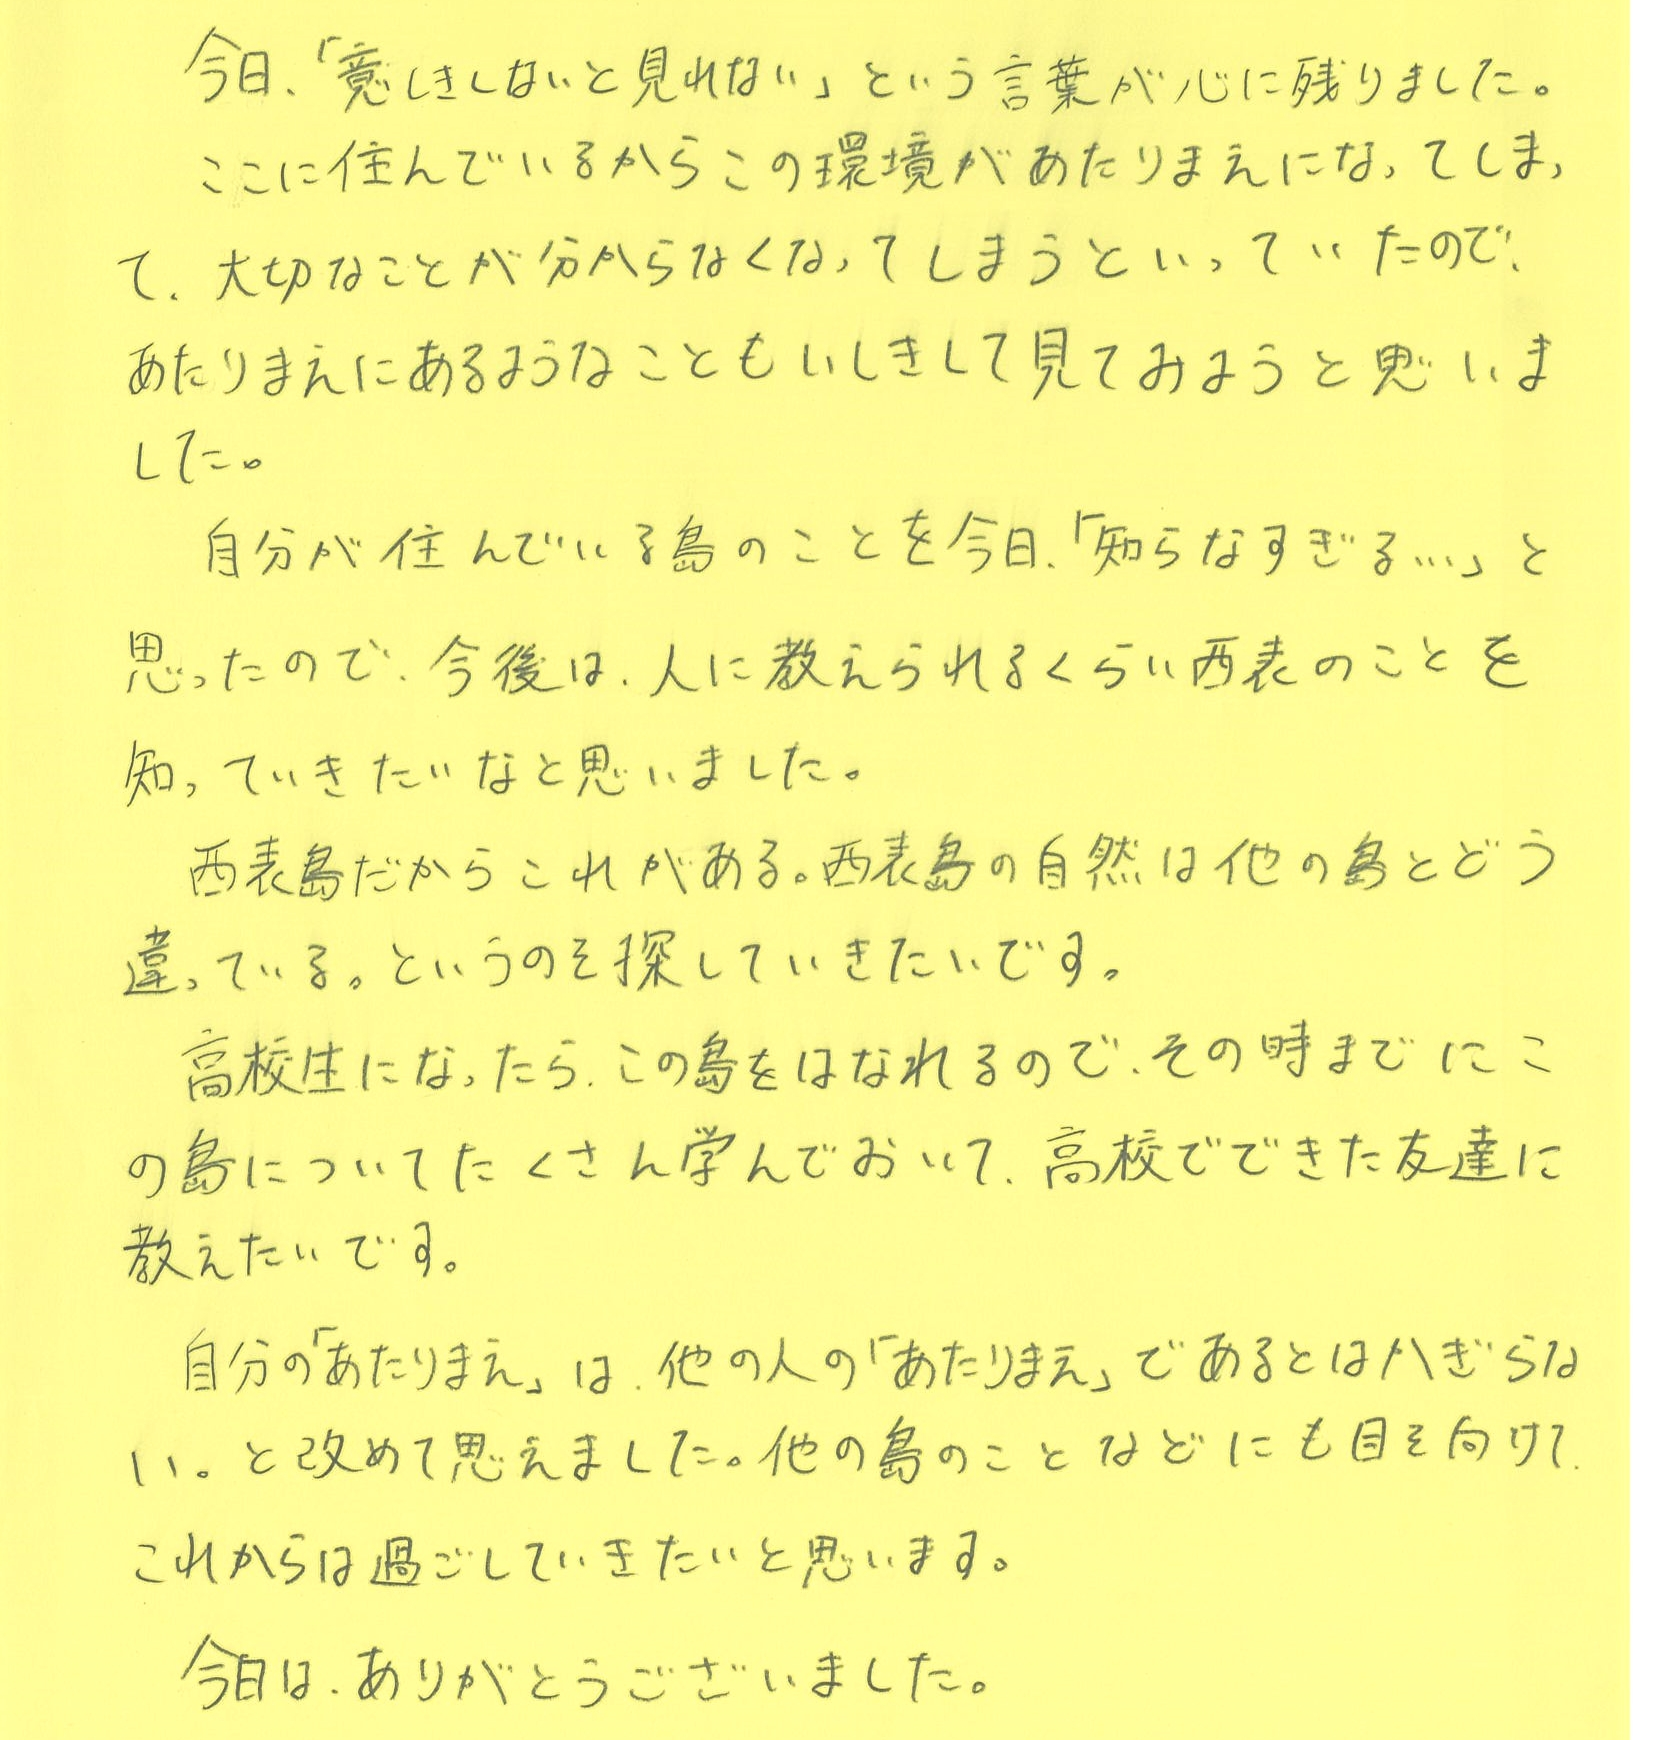 今日、「意しきしないと見れない」という言葉が心に残りました。
ここに住んでいるからこの環境があたりまえになってしまっ
て、大切なことが分からなくなってしまうといっていたので、
あたりまえにあるようなこともいしきして見てみようと思いま
した。
自分が住んでいる島のことを今日、「知らなすぎる…」と
思ったので、今後は、人に教えられるくらい西表のことを
知っていきたいなと思いました。
西表島だからこれがある。西表島の自然は他の島とどう
違っている。というのを探していきたいです。
高校生になったら、この島をはなれるので、その時までにこ
の島についてたくさん学んでおいて、高校でできた友達に
教えたいです。
自分の「あたりまえ」は、他の人の「あたりまえ」であるとはかぎらな
い。と改めて思えました。他の島のことなどにも目を向けて、
これからは過ごしていきたいと思います。
今日は、ありがとうございました。